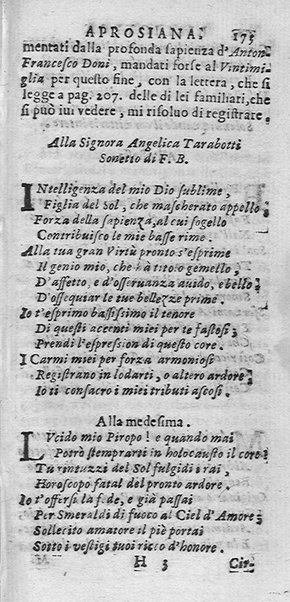 APROSIANA. 173
mentati dalla profonda sapienza d'Anton
Francesco Doni, mandati forse al Vintimi-
glia per questo fine, con la lettera, che si
legge a pag. 207. delle di lei familiari,che
si può iui vedere, mi risoluo di registrare.
Alla Signora Angelica Tarabotti
Sonetto di F. B.
INtelligenza del mio Dio sublime,
Figlia del Sol, che mascherato appello
Forza della sapienza, al cui sogello
Contribuisco le mie basse rime.
Alla tua gran Virtù pronto s'esprime
Il genio mio, che hà titolo gemello,
D'affetto, e d'osseruanza auido, e bello
D'ossequiar le tue bellezze prime.
Io t'esprimo bassissimo il tenore
Di questi accenti miei per te fastosi
Prendi l'espression di questo core.
I Carmi miei per forza armoniosi
Registrano in lodarti, o altero ardore
Io ti consacro i miei tributi ascosi.
Alla medesima.
LVcido mio Piropo! e quando mai
Potrò stemprarti in holocausto il core
Tu rintuzzi del Sol fulgidi i rai,
Horoscopo fatal del pronto ardore.
Io t'offersi la fede, e già passai
Per Smeraldi di fuoco al Ciel d'Amore
Sollecito amatore il piè portai
Sotto i vestigi tuoi ricco d'honore.
H 3 Cir-